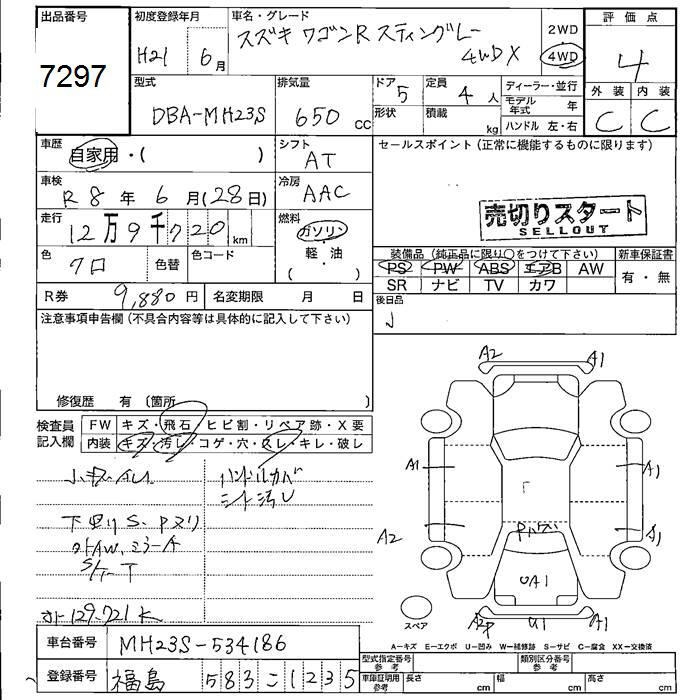 出品番号
7297
初度登録年月
H21 6月
車名・グレード
スズキ ワゴンR スティングレー
4WD X
2WD
4WD
評価点
4
外装 内装
C C
型式
DBA-MH23S
排気量
650 cc
ドア
5
定員
4 人
形状
積載
kg
ディーラー・並行
モデル年式 年
ハンドル 左・右
車歴
自家用・( )
シフト
AT
車検
R 8 年 6 月(28日)
冷房
AAC
走行
12万9千720km
燃料
ガソリン
軽・油
( )
色
クロ
色替
色コード
R券 9,880円
名変期限 月 日
セールスポイント(正常に機能するものに限ります)
売切りスタート
SELLOUT
装備品(純正品に限り○をつけて下さい)
PS PW ABS エアB AW
SR ナビ TV カワ
新車保証書
有・無
後日品
注意事項申告欄(不具合内容等は具体的に記入して下さい)
修復歴 有(箇所 )
検査員記入欄
FW キズ・飛石・ヒビ割・リペア跡・X要
内装 キズ・汚レ・コゲ・穴・スレ・キレ・破レ
小キズ・凹
ハンドルカバ
シート汚レ
下回りS、Pヌリ
AW、ミラーA
129.721K
A2 A1
A1 A1
A2 A1
UA1
U1 A1
スペア
A-キズ E-エクボ U-凹み W-補修跡 S-サビ C-腐食 XX-交換済
車台番号 MH23S-534186
登録番号 福島 583 こ 1235
型式指定番号 参考
類別区分番号 参考
車庫証明用 参考
長さ cm
幅 cm
高さ cm